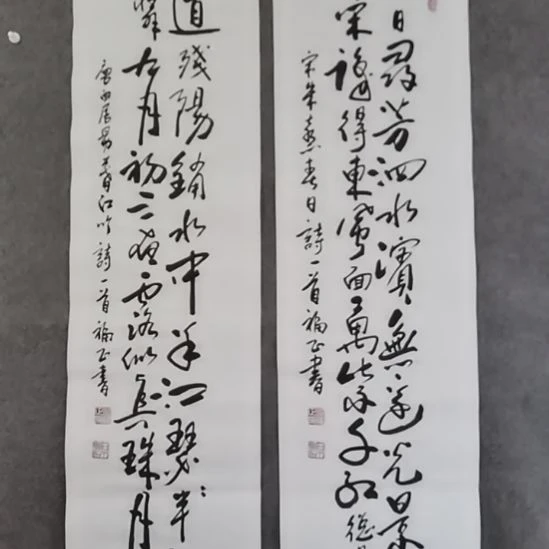 日尋芳泗水濱無邊光景
閑識得東風面萬紫千紅總
宋朱熹春日詩一首福正書
道殘陽鋪水中半江瑟〻半
憐九月初三夜露似真珠月
唐白居易暮江吟詩一首福正書